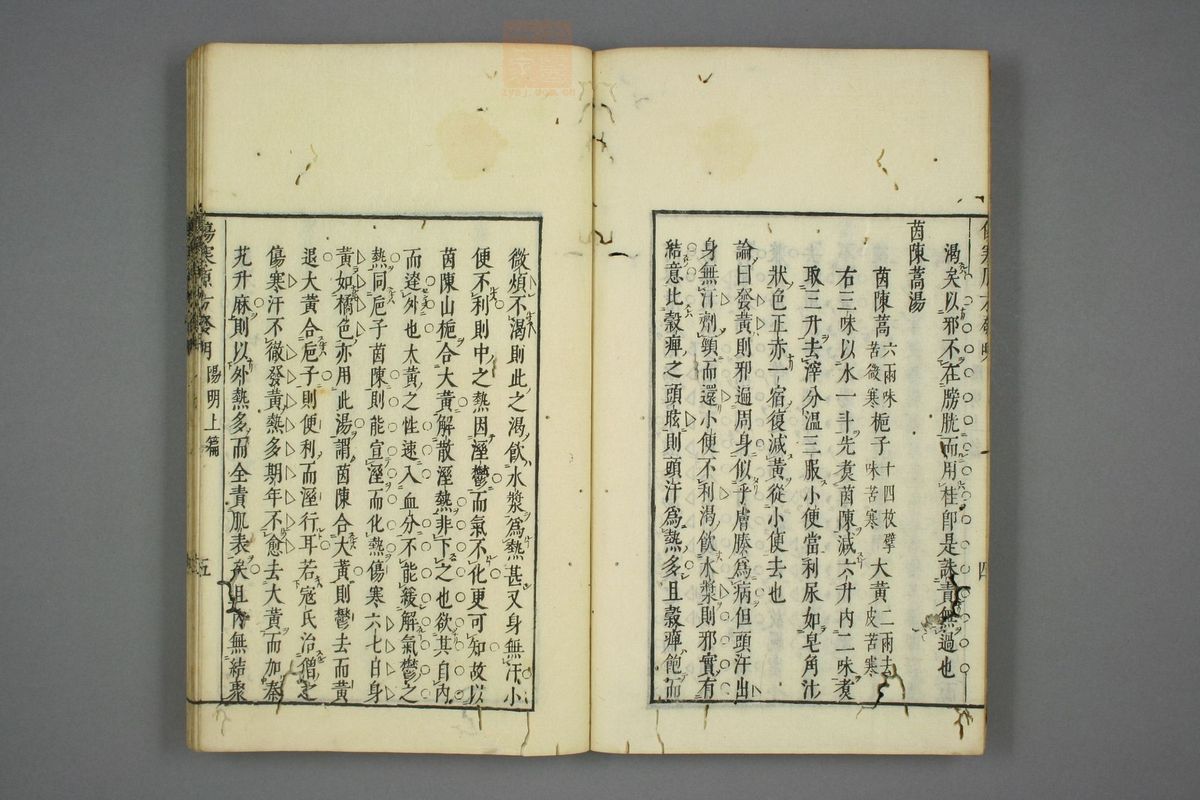 渴矣以邪不在膀胱而用桂卽是誅責無過也
茵陳蒿湯
茵陳蒿六兩味苦微寒梔子十四枚擘味苦寒大黃二兩去皮苦寒
右三味以水一斗先煑茵陳減六升內二味煑
取三升去滓分溫三服小便當利尿如皂角汁
狀色正赤一宿復減黃從小便去也
論曰發黃則邪遍周身似乎膚腠爲病但頭汗出
身無汗劑頸而還小便不利渴飲水漿則邪實有
結意此穀癉之頭眩則頭汗爲熱多且穀癉飽而
四
微煩不渴則此之渴飲水漿爲熱甚又身無汗小
便不利則中之熱因溼鬱而氣不化更可知故以
茵陳山梔合大黃解散溼熱非下之也欲其自內
而達外也大黃之性速入血分不能緩解氣鬱之
熱同梔子茵陳則能宣溼而化熱傷寒六七日身
黃如橘色亦用此湯謂茵陳合大黃則鬱去而黃
退大黃合梔子則便利而溼行耳若寇氏治僧之
傷寒汗不徹發黃熱多期年不愈去大黃而加秦
艽升麻則以外熱多而全責肌表矣且內無結聚
傷寒原方發明 陽明上篇
五